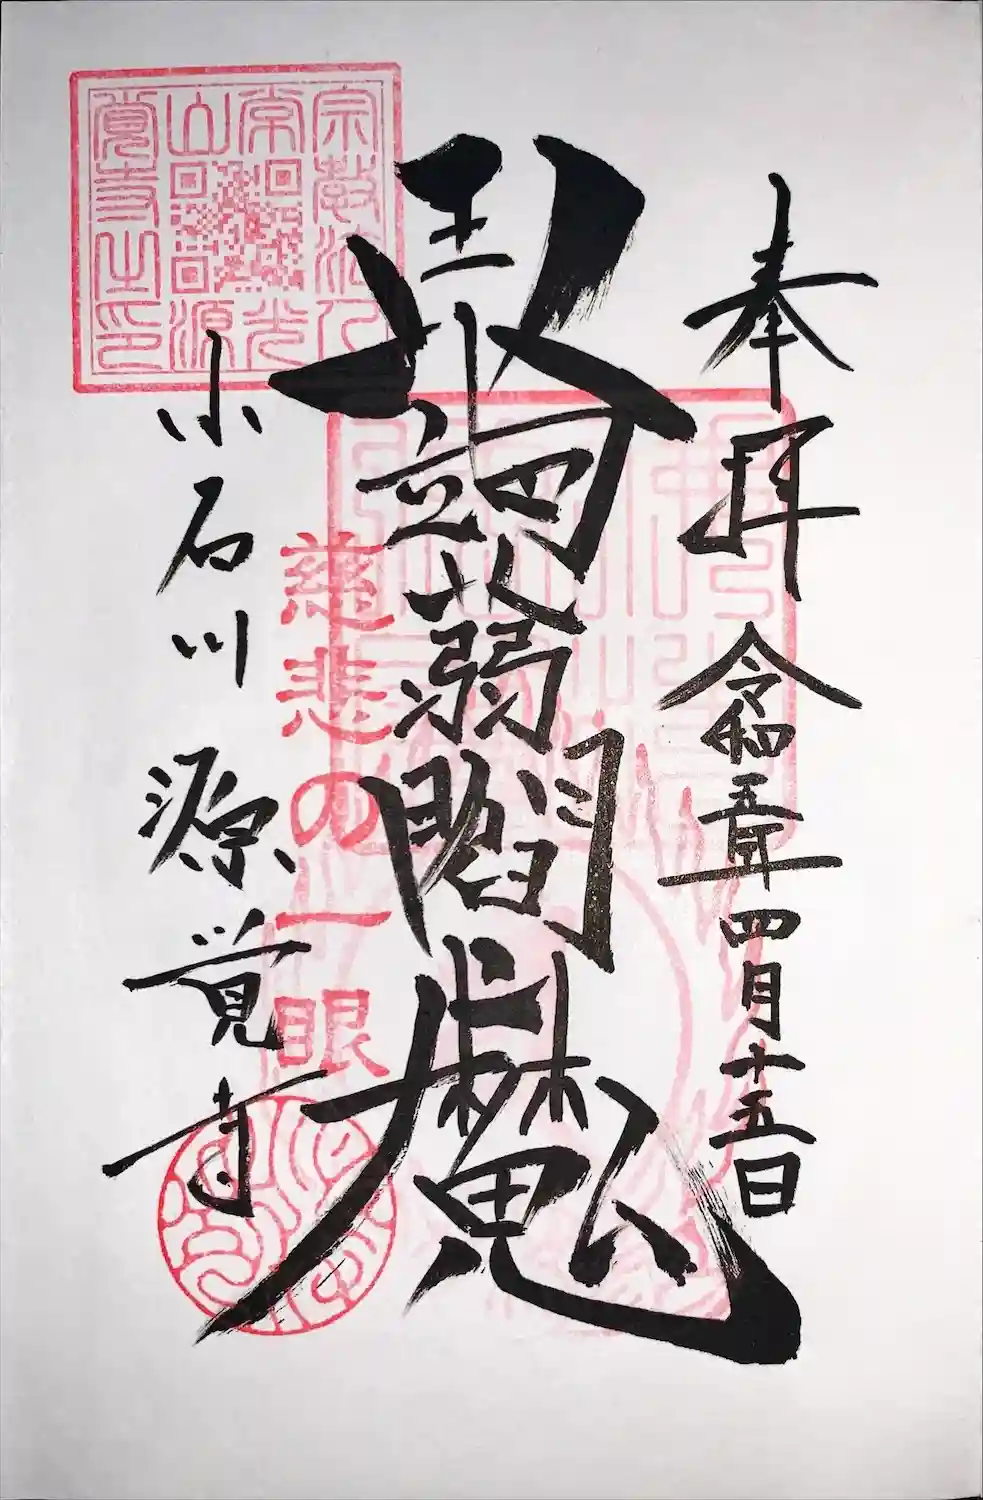 奉拝 令和五年四月十五日
蒟蒻閻魔
慈悲の一眼
小石川 源覚寺
宗教法人
常光
山源
覺寺之印